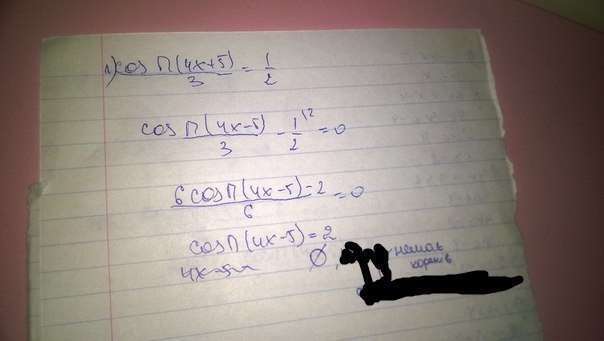 1) cos П(4x+5)/3 = 1/2
cos П(4x-5)/3 - 1/2 \2 = 0
6 cos П(4x-5) - 2 / 6 = 0
cos П(4x-5) = 2
4x-5 ∅ немає коренів